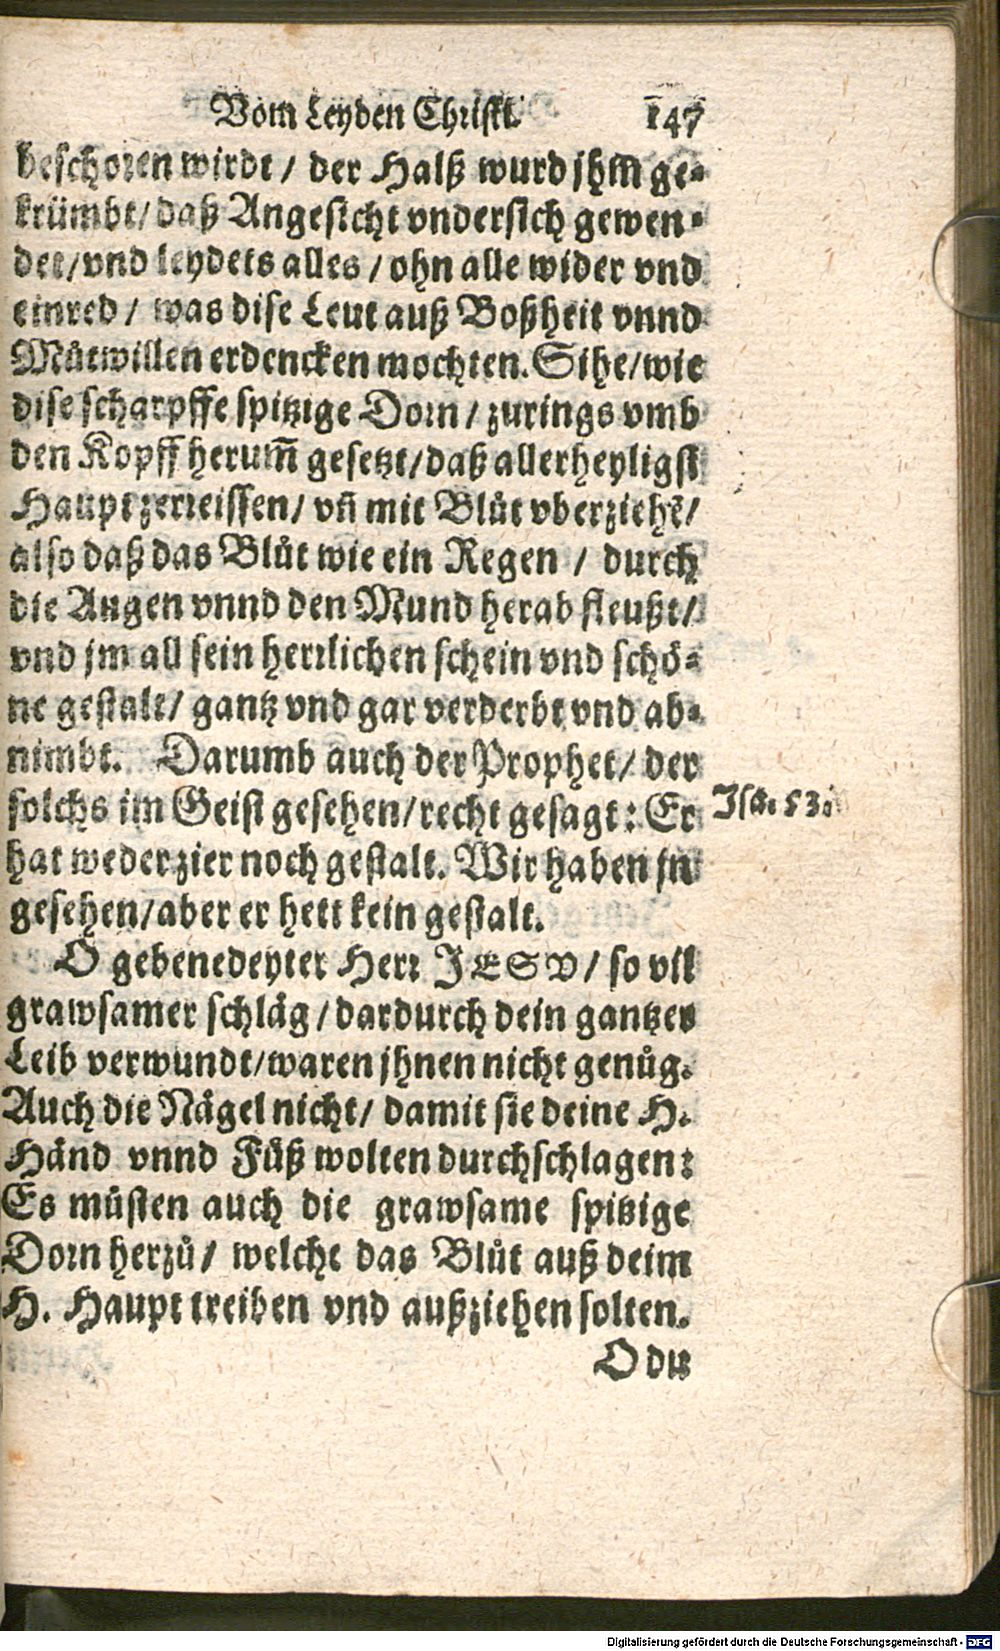 Vom Leyden Christi. 147
beschoren wirdt / der Halß wurd jhm ge-
krümbt / daß Angesicht vndersich gewen-
det / vnd leydets alles / ohn alle wider vnd
einred / was dise Leut auß Boßheit vnnd
Můtwillen erdencken mochten. Sihe / wie
dise scharpffe spitzige Dorn / zurings vmb
den Kopff herum̃ gesetzt / daß allerheyligst
Haupt zerreissen / vñ mit Blůt vberziehẽ /
also daß das Blůt wie ein Regen / durch
die Augen vnnd den Mund herab fleußt /
vnd jm all sein herrlichen schein vnd schö-
ne gestalt / gantz vnd gar verderbt vnd ab-
nimbt. Darumb auch der Prophet / der
solchs im Geist gesehen / recht gesagt: Er
Isa. 53.
hat weder zier noch gestalt. Wir haben jn
gesehen / aber er hett kein gestalt.
O gebenedeyter Herr JESV / so vil
grawsamer schläg / dardurch dein gantzer
Leib verwundt / waren jhnen nicht genůg.
Auch die Nägel nicht / damit sie deine H.
Händ vnnd Füß wolten durchschlagen:
Es můsten auch die grawsame spitzige
Dorn herzů / welche das Blůt auß deim
H. Haupt treiben vnd außziehen solten.
O du
Digitalisierung gefördert durch die Deutsche Forschungsgemeinschaft - DFG